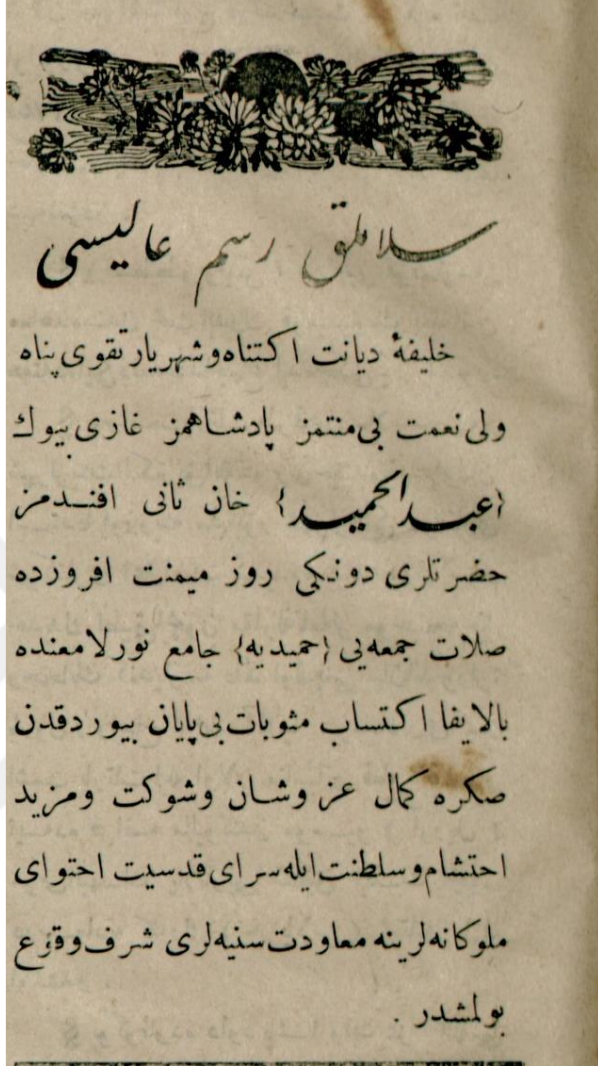 سلاملق رسم عاليسى
خليفهٔ ديانت اكتناه وشهريار تقوى پناه
ولى نعمت بى‌منتمز پادشاهمز غازى بيوك
{عبدالحميد} خان ثانى افندمز
حضرتلرى دونكى روز ميمنت افروزده
صلات جمعه‌يى {حميديه} جامع نورلامعنده
بالايفا اكتساب مثوبات بى‌پايان بيوردقدن
صكره كمال عز وشان وشوكت ومزيد
احتشام وسلطنت ايله سراى قدسيت احتواى
ملوكانه‌لرينه معاودت سنيه‌لرى شرف‌وقوع
بولمشدر .